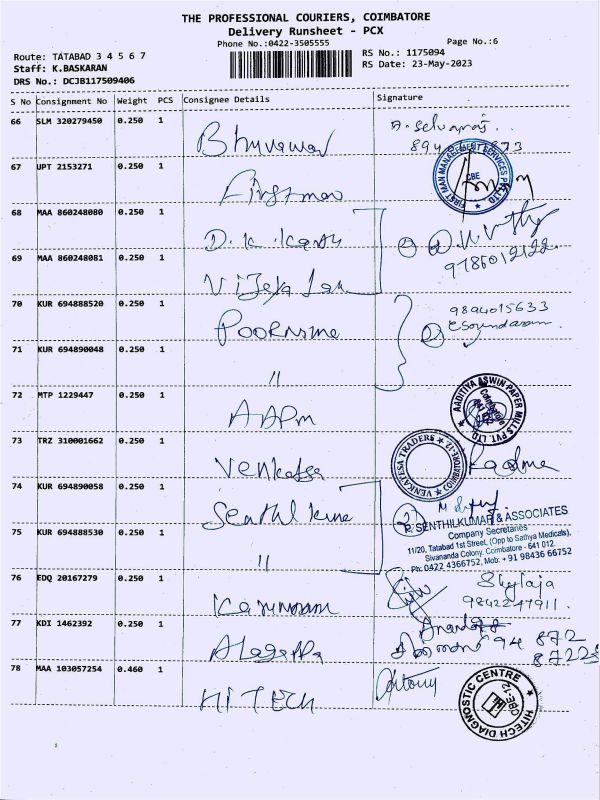 THE PROFESSIONAL COURIERS, COIMBATORE
Delivery Runsheet - PCX
Phone No.:0422-3505555
Page No.:6
Route: TATABAD 3 4 5 6 7
RS No.: 1175094
Staff: K.BASKARAN
RS Date: 23-May-2023
DRS No.: DCJB117509406
S No Consignment No Weight PCS Consignee Details Signature
66 SLM 320279450 0.250 1
Bhuvaneswari
67 UPT 2153271 0.250 1
FIRST MAN MANAGEMENT SERVICES PVT LTD
CBE
Firstman
68 MAA 860248080 0.250 1
D.K.
69 MAA 860248081 0.250 1
Vijaya
70 KUR 694888520 0.250 1
9894015633
Poornima
71 KUR 694890048 0.250 1
"
72 MTP 1229447 0.250 1
AADITIYA ASWIN PAPER MILLS PVT. LTD.
AAPM
73 TRZ 310001662 0.250 1
VENKATESA TRADERS
COIMBATORE-12
Venkatesa
Padma
74 KUR 694890058 0.250 1
Senthil
R. SENTHILKUMAR & ASSOCIATES
Company Secretaries
11/20, Tatabad 1st Street, (Opp to Sathya Medicals),
Sivananda Colony, Coimbatore - 641 012.
Ph: 0422 4366752, Mob: + 91 98436 66752
75 KUR 694888530 0.250 1
"
76 EDQ 20167279 0.250 1
Shylaja
77 KDI 1462392 0.250 1
Alagappa
78 MAA 103057254 0.460 1
Antony
HITECH
HITECH DIAGNOSTIC CENTRE
CBE-12